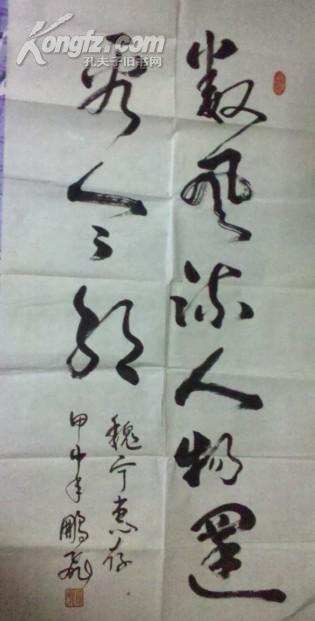 数风流人物还
看今朝
魏宁惠存
甲申年鹏飞
Kongfz.com
孔夫子旧书网